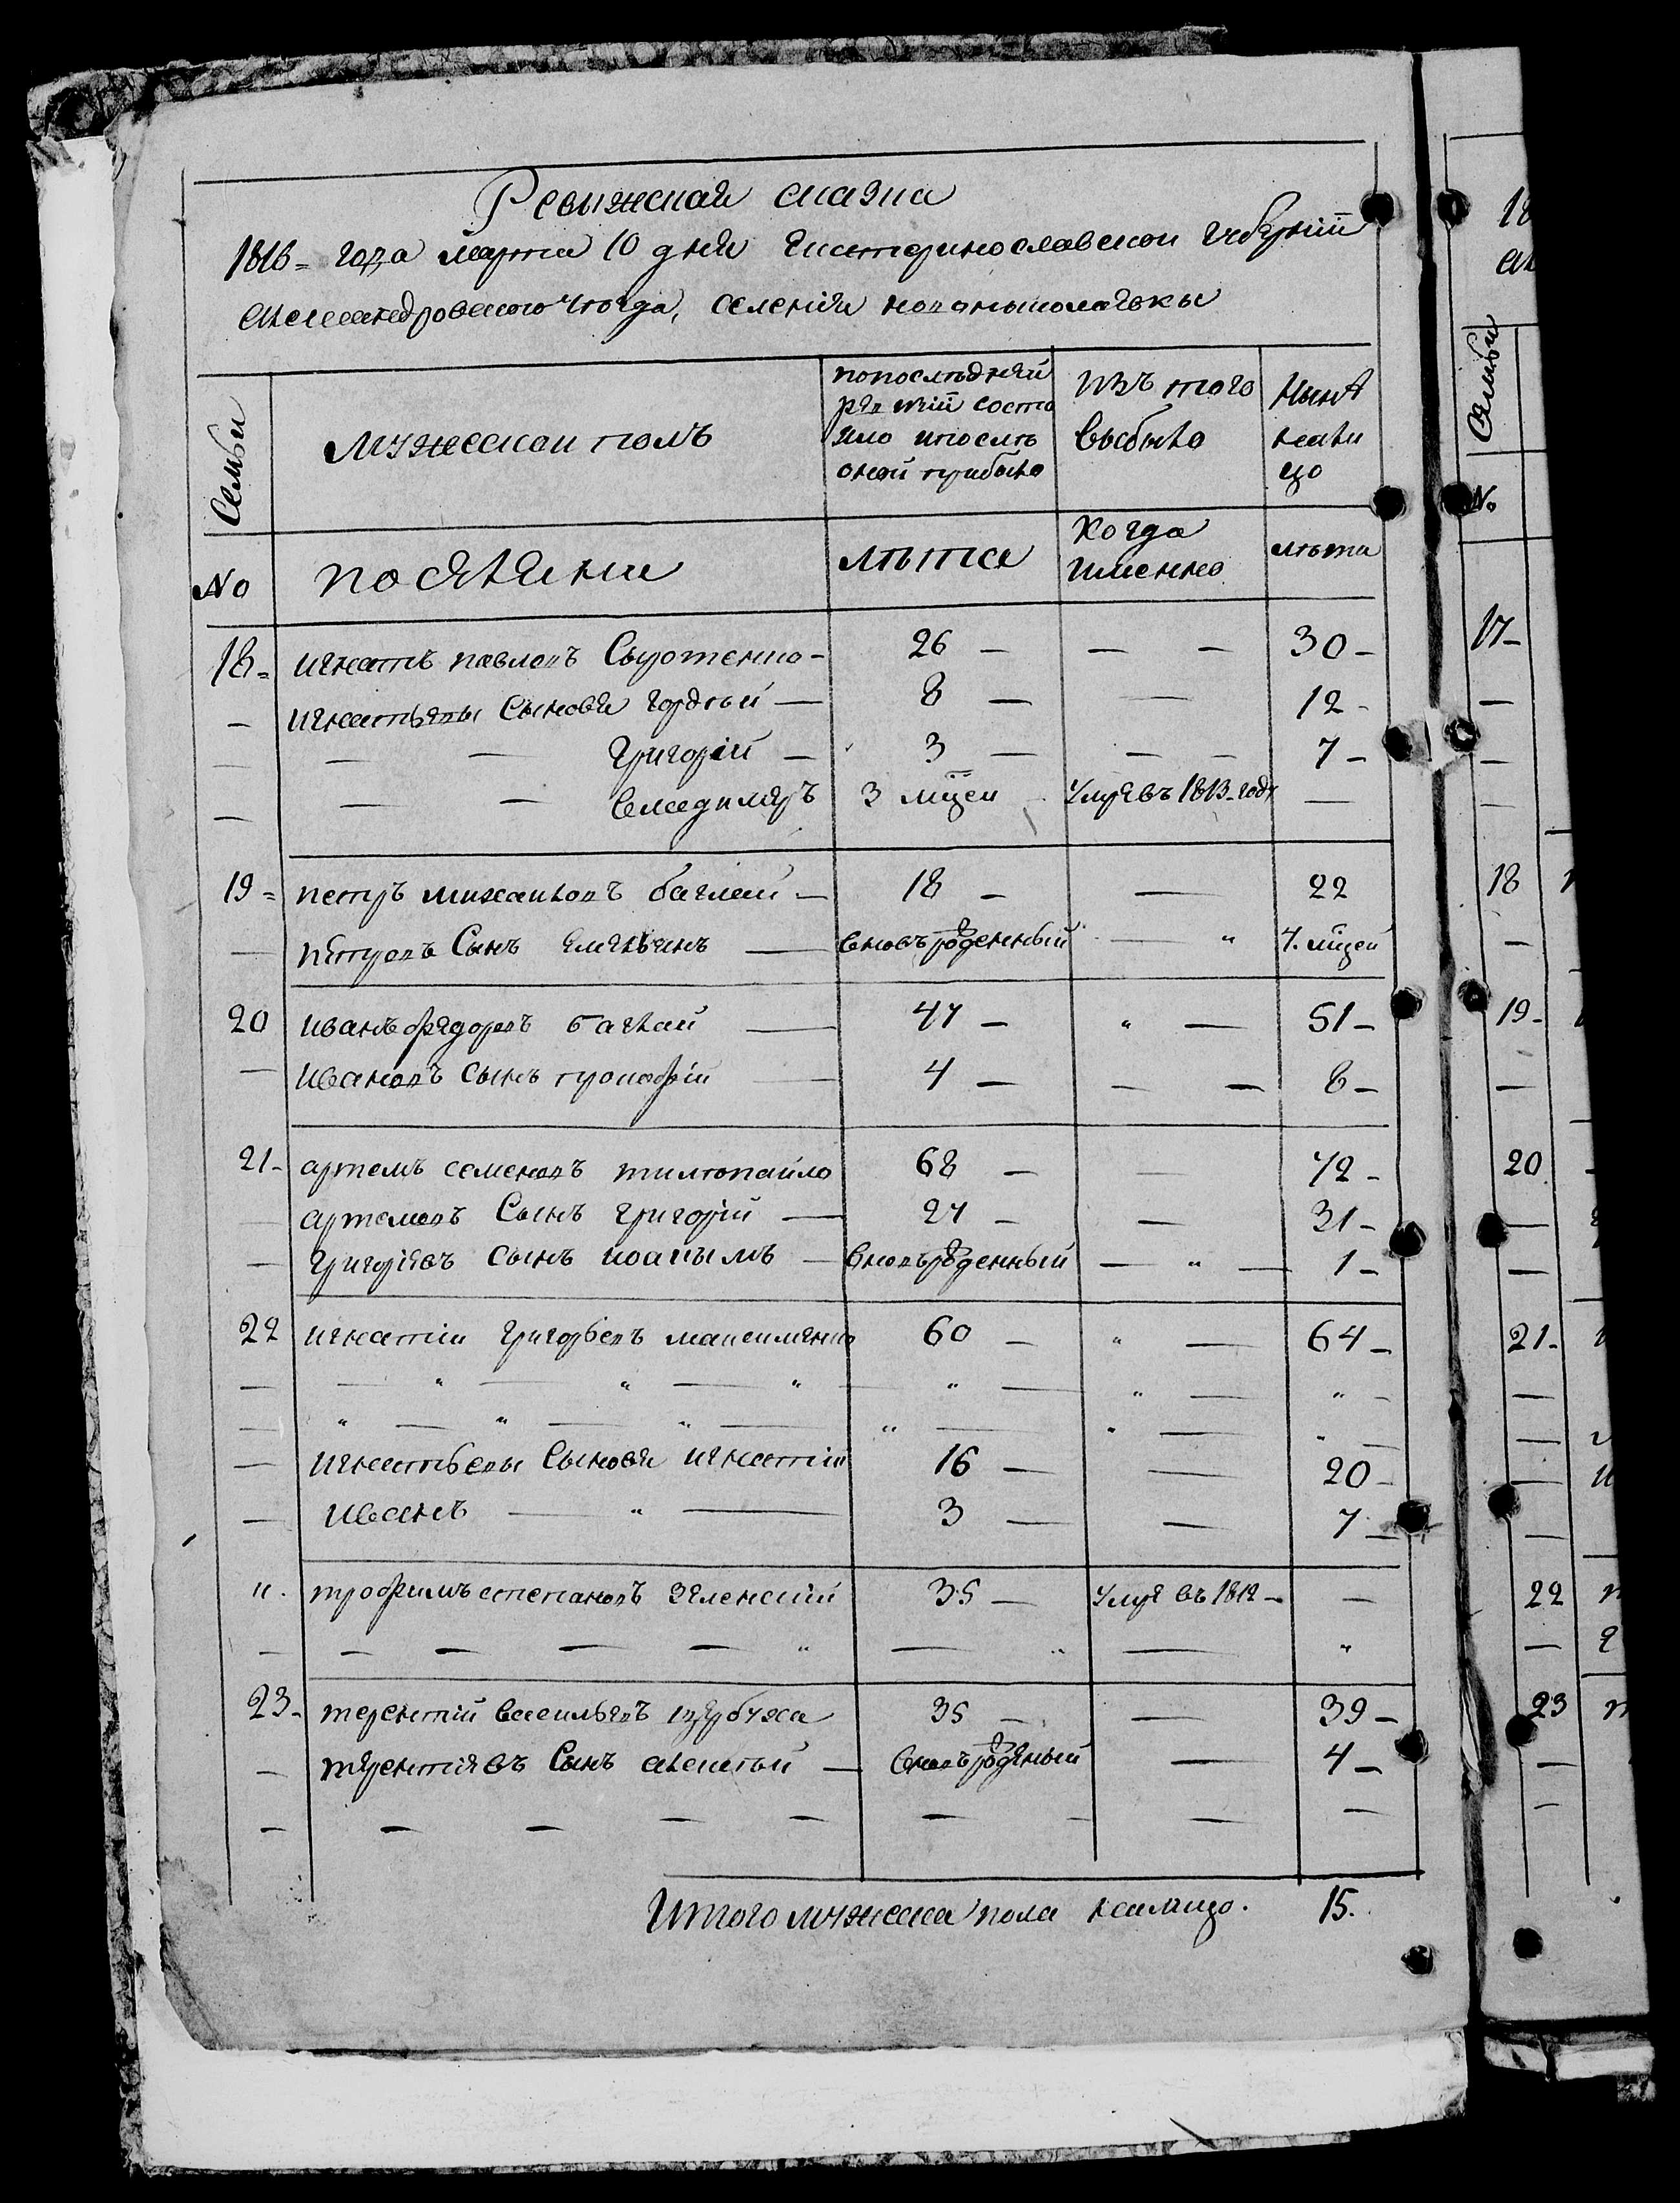 Ревижская сказка
1816 = года марта 10 дня Екатеринославской губернии
Александровского уезда, селения новониколаевкы
Семьи
мужеской полъ
попоследней ревизии состояло ипосле оной прибыло
изъ того выбыло
Ныне налицо
No
поселяни
лета
Когда именно
лета
18 = игнатъ павловъ Сыротенко - 26 — — — 30 -
— игнатьевы Сыновя гордей — 8 — — 12 -
— — — Григорий — 3 — — — 7 -
— — — владимеръ 3 мцеи умре въ 1813 - годе —
19 = петръ михаиловъ баглай — 18 — — 22
— петровъ Сынъ емелянъ — вновърожденный — " 7. мцей
20 иванъ федоровъ баглай — 47 — " — 51 -
— ивановъ сынъ прокофий — 4 — — — 8 -
21 - артемъ семеновъ тилопайло 68 — — 72 -
— артемовъ Сынъ григорий — 27 — — 31 -
— григориевъ сынъ иоакымъ — вновърожденный — " — 1 -
22 игнатий григорьевъ максименко 60 — " — 64 -
— — " — " — " — " — " — " -
— " — " — " — " — " — " —
— игнатьевы Сыновя игнатий 16 — — 20 -
— иванъ — " — 3 — — 7 —
". трофимъ степановъ Зеленский 35 — умре въ 1812 - —
— — — — — " — " — "
23 - терентий васильевъ 35 — — 39 -
— терентиевъ Сынъ алексей — вновърожденый — 4 -
— — — — — — — — —
Итого мужеска пола налицо. 15.
18
Семьи
No
17 -
—
—
—
18
—
19 -
—
20
—
—
21 -
—
—
—
—
22
—
23
—
—